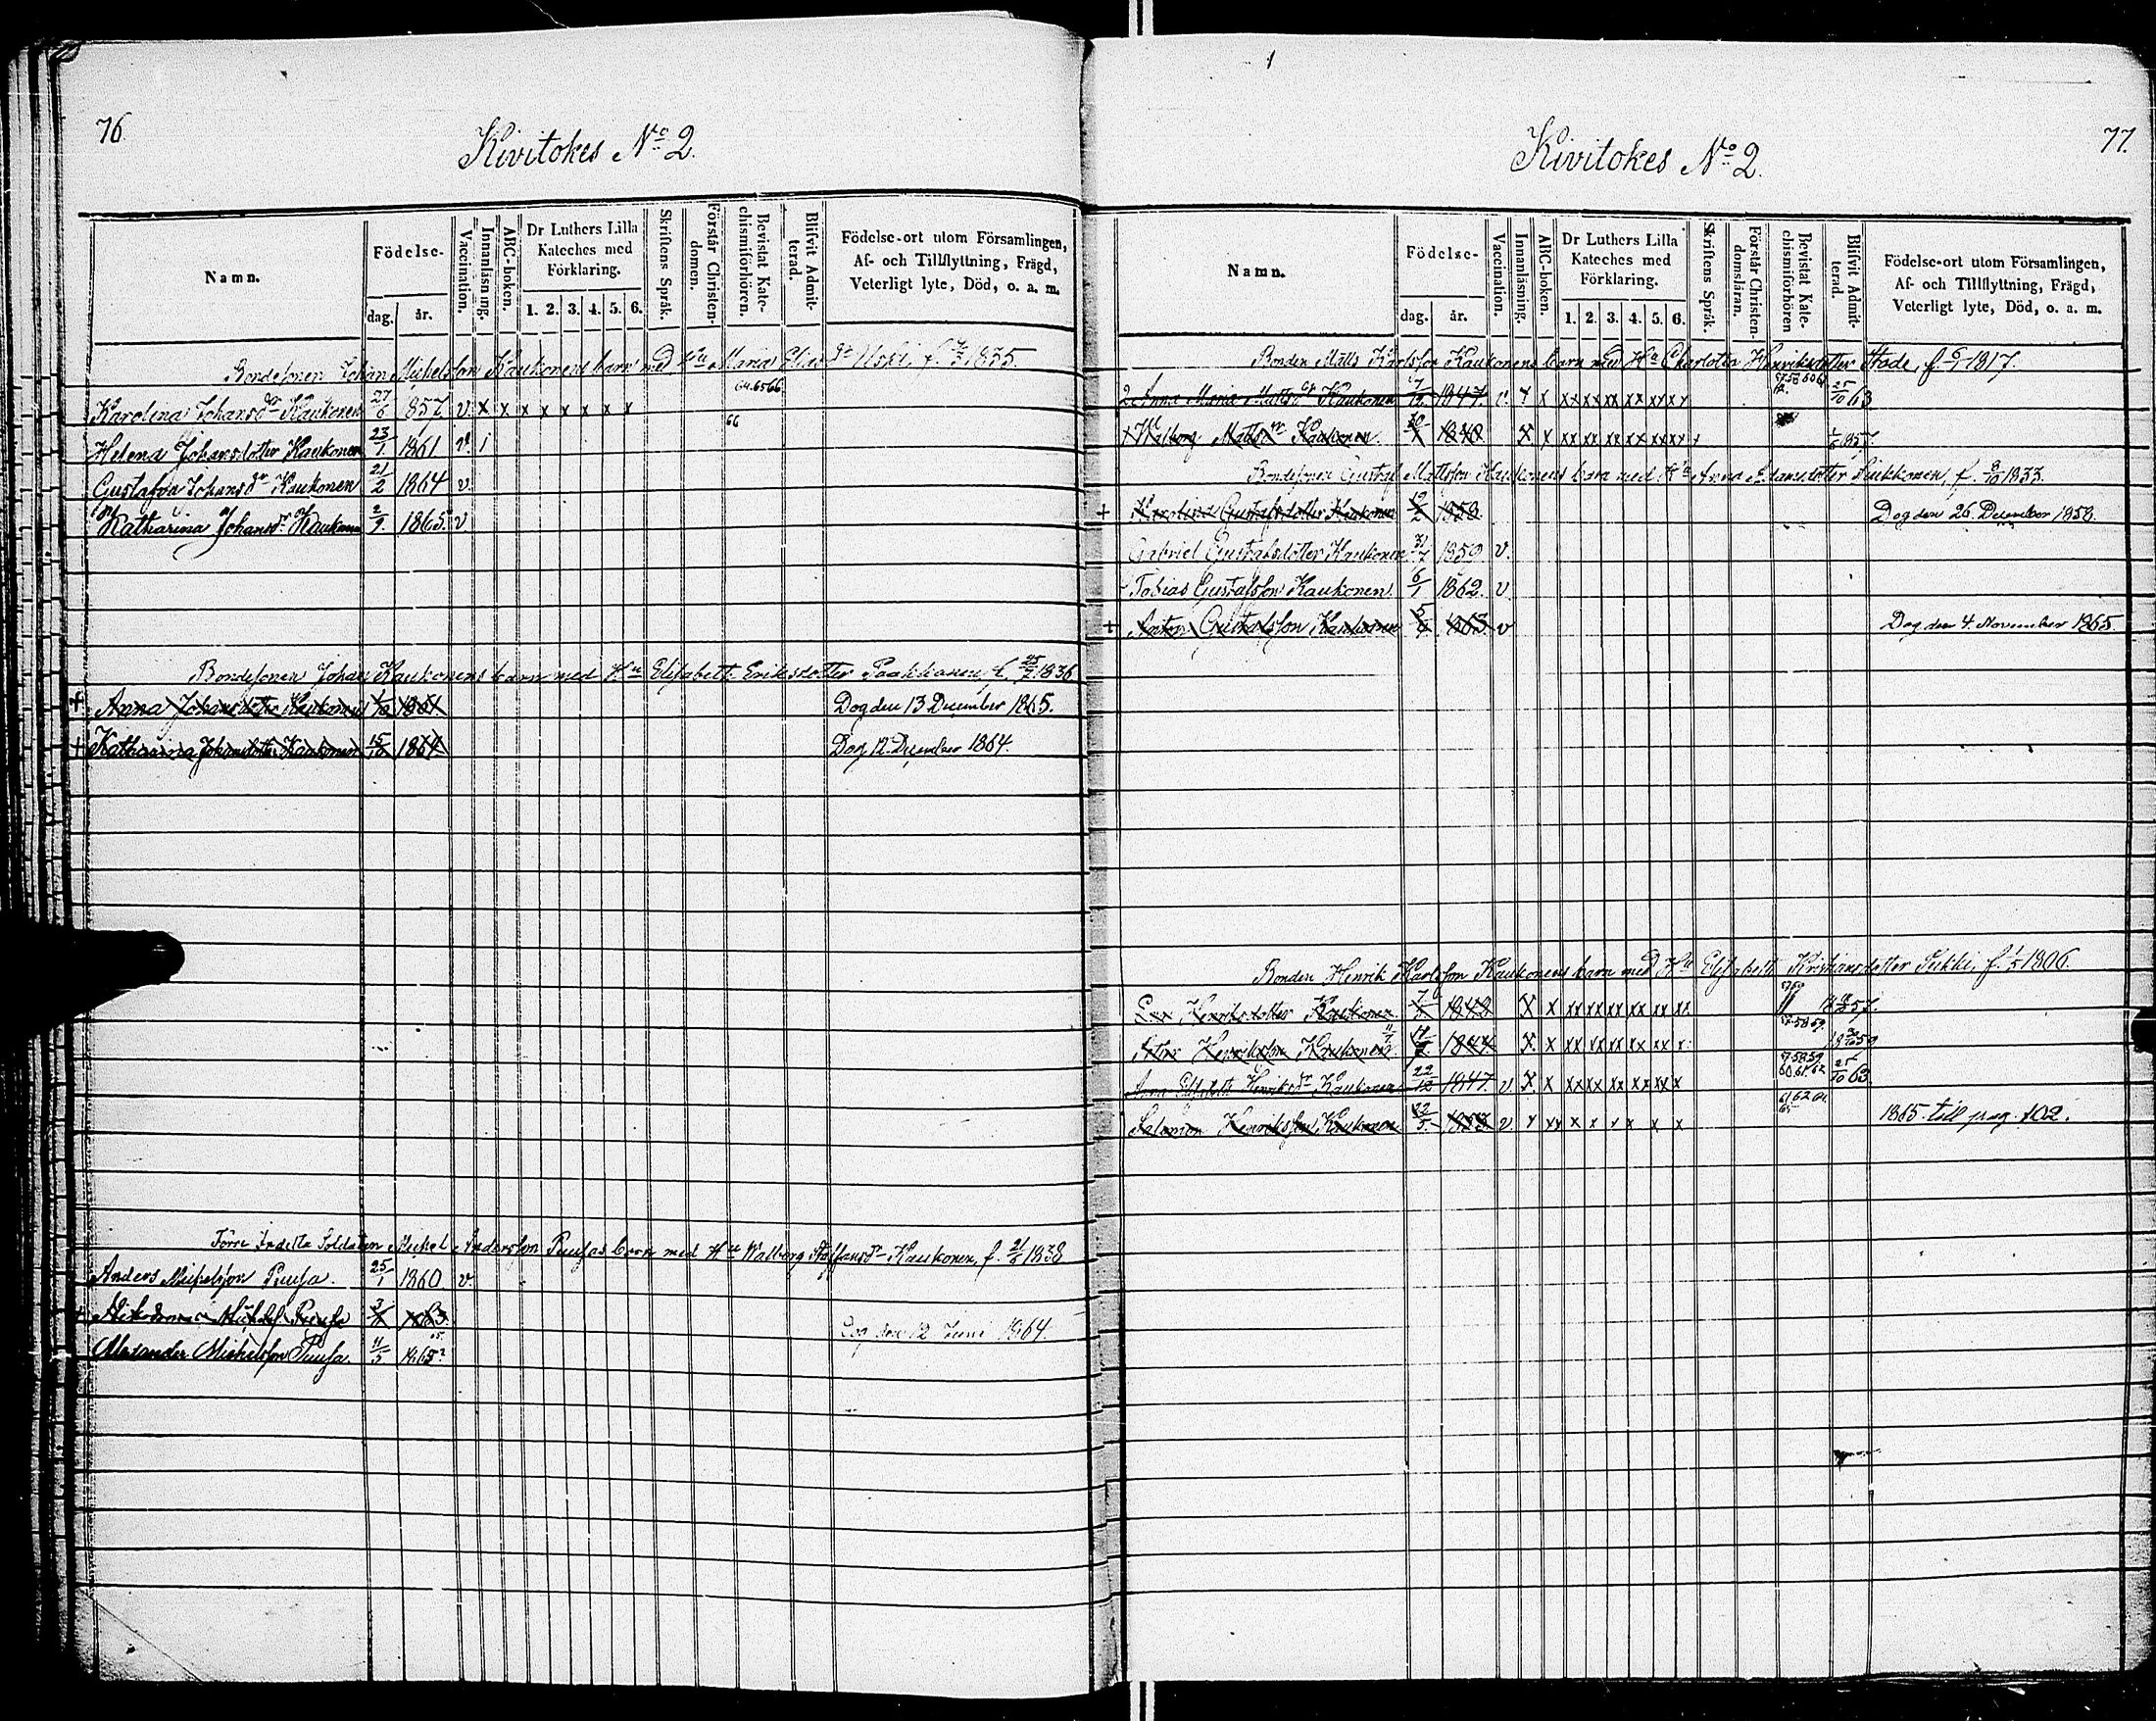 76.
Kivitokes No 2.
Namn.
Födelse-
dag. år.
Vaccination.
Innanläsning.
ABC-boken.
Dr Luthers Lilla Kateches med Förklaring.
1. 2. 3. 4. 5. 6.
Skriftens Språk.
Förstår Christendomen.
Bevistat Katechismiförhören.
Blifvit Admitterad.
Födelse-ort utom Församlingen,
Af- och Tillflyttning, Frägd,
Veterligt lyte, Död, o. a. m.
Bondesonen Johan Kaukonens barn med Maria 1835.
64.65 66
Karolina Johansdr Kaukonen 27/6 857 v. x x x x x x x x
66
Helena Johansdotter Kaukonen 23/1 1861 v. i
Gustafva Johansdr Kaukonen 21/2 1864 v.
Katharina Johansdr Kaukonen 2/9 1865 v
Bondesonen Johan Kaukonens barn med Hu Elisabeth Eriksdotter Paakkanen, f. 25/7 1836
+ Anna Johansdotter Kaukonen 1861. Dog den 13 December 1865.
+ Katharina Johansdotter Kaukonen 15/ 1864. Dog 12. December 1864.
Förre Indelta Soldaten Mickel Andersson Puusas barn med Hu Walborg Staffansdr Kaukonen, f. 21/6 1838
Anders Mickelsson Puusa. 25/1 1860 v.
+ Puusa 1863. Dog den 12 Juni 1864.
Alexander Michelsson Puusa. 11/5 1865
77.
Kivitokes No 2.
Namn.
Födelse-
dag. år.
Vaccination.
Innanläsning.
ABC-boken.
Dr Luthers Lilla Kateches med Förklaring.
1. 2. 3. 4. 5. 6.
Skriftens Språk.
Förstår Christendomsläran.
Bevistat Katechismiförhören
Blifvit Admitterad.
Födelse-ort utom Församlingen,
Af- och Tillflyttning, Frägd,
Veterligt lyte, Död, o. a. m.
Bonden Matts Karlsson Kaukonens barn med Hu Charlotta Henriksdotter f. 1817.
Anna Maria Mattsdr Kaukonen 1847. v. x x xx xx xx xx xx 25/10 63
Walborg Mattsdr Kaukonen. 1840 x x xx xx xx xx xx 857.
Bondesonen Gustaf Mattsson Kaukonens barn med Hu Anna Adamsdotter f. 8/10 1833.
+ Karolina Gustafsdotter Kaukonen 12/2 1858. Dog den 26 December 1858.
Gabriel Gustafsdotter Kaukonen 31/7 1859 v.
Tobias Gustafsson Kaukonen. 6/1 1862. v.
+ Anton Gustafsson Kaukonen v Dog den 4. November 1865.
Bonden Henrik Karlsson Kaukonens barn med Hu Elisabeth Kristiansdotter f. 1806.
Eva Henriksdotter Kaukonen x x xx xx xx xx xx 57.
57 58 59.
Henriksson Kaukonen. 1844. x x xx xx xx xx xx 59
57.58.59 60.61.62
Anna Elisabeth Henriksdr Kaukonen 22/12 1847. v. x x xx xx xx xx xx 25/10 63.
Salomon Henriksson Kaukonen 22/5 v x xx x x x x x 1865 till pag. 102.